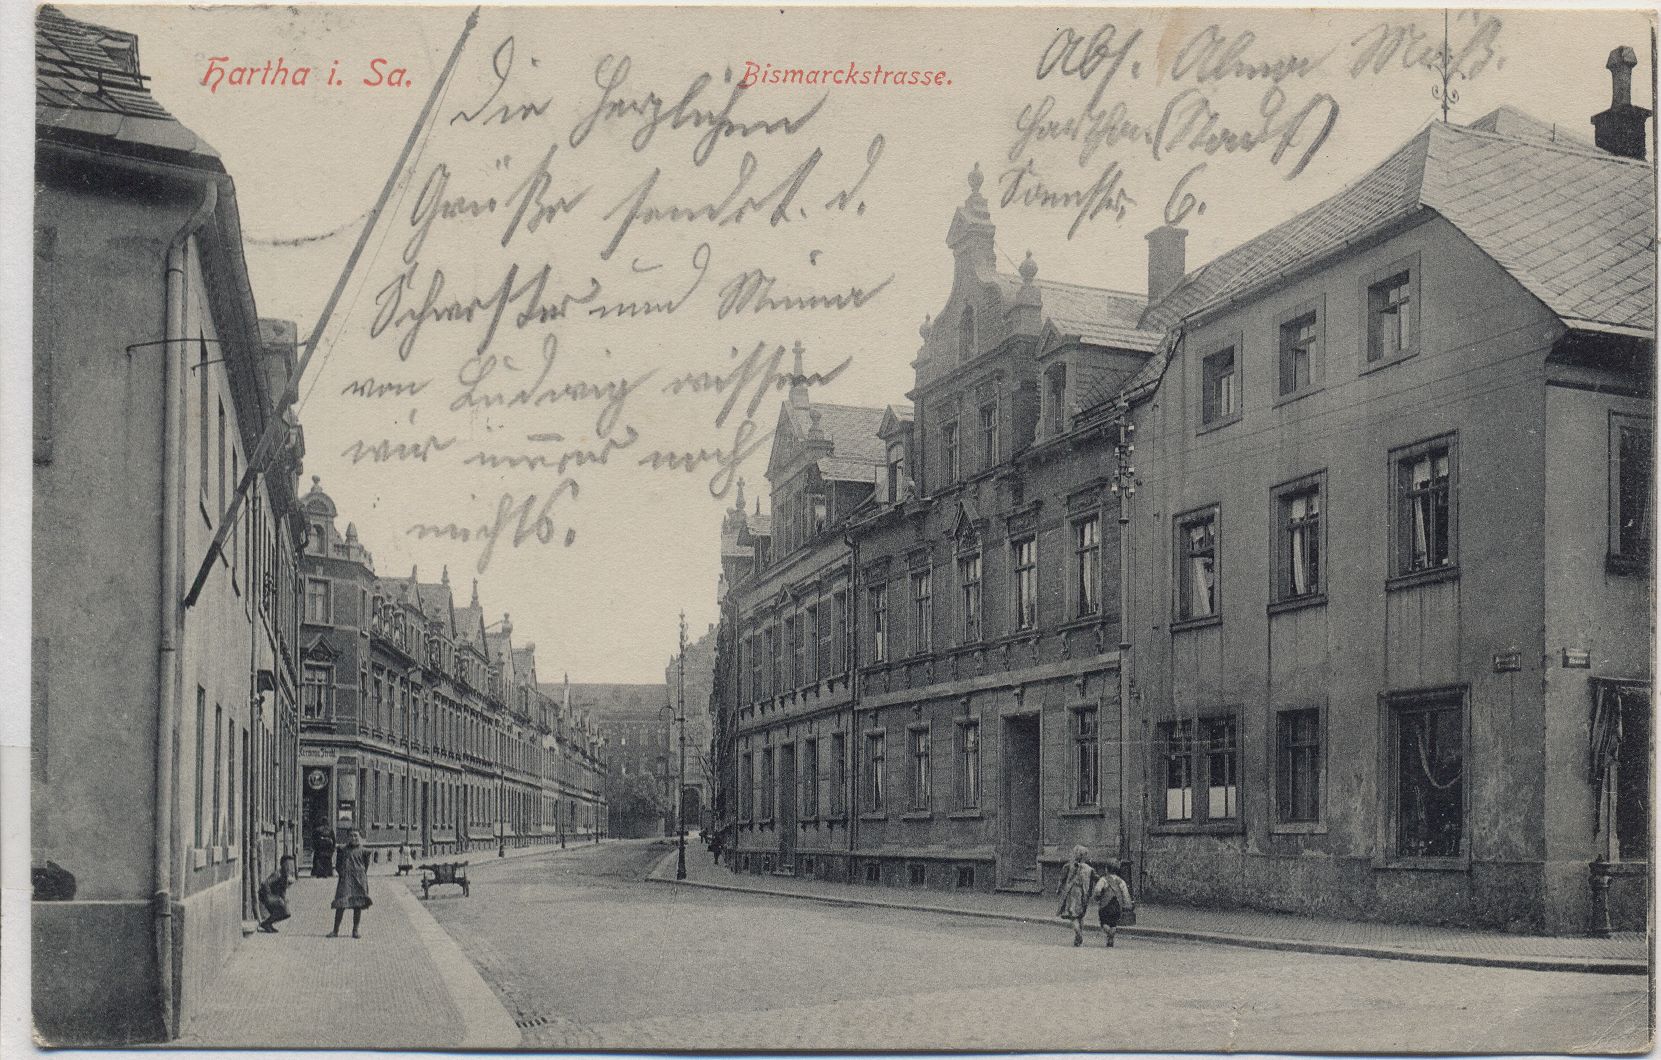 Hartha i. Sa.
Bismarckstrasse.
Abs. Alma Müß.
Hartha. (Stadt)
6.
Die Herzlichen
Grüße sendet. d.
Schwester und Minna
von Ludwig wissen
wir immer noch
nichts.